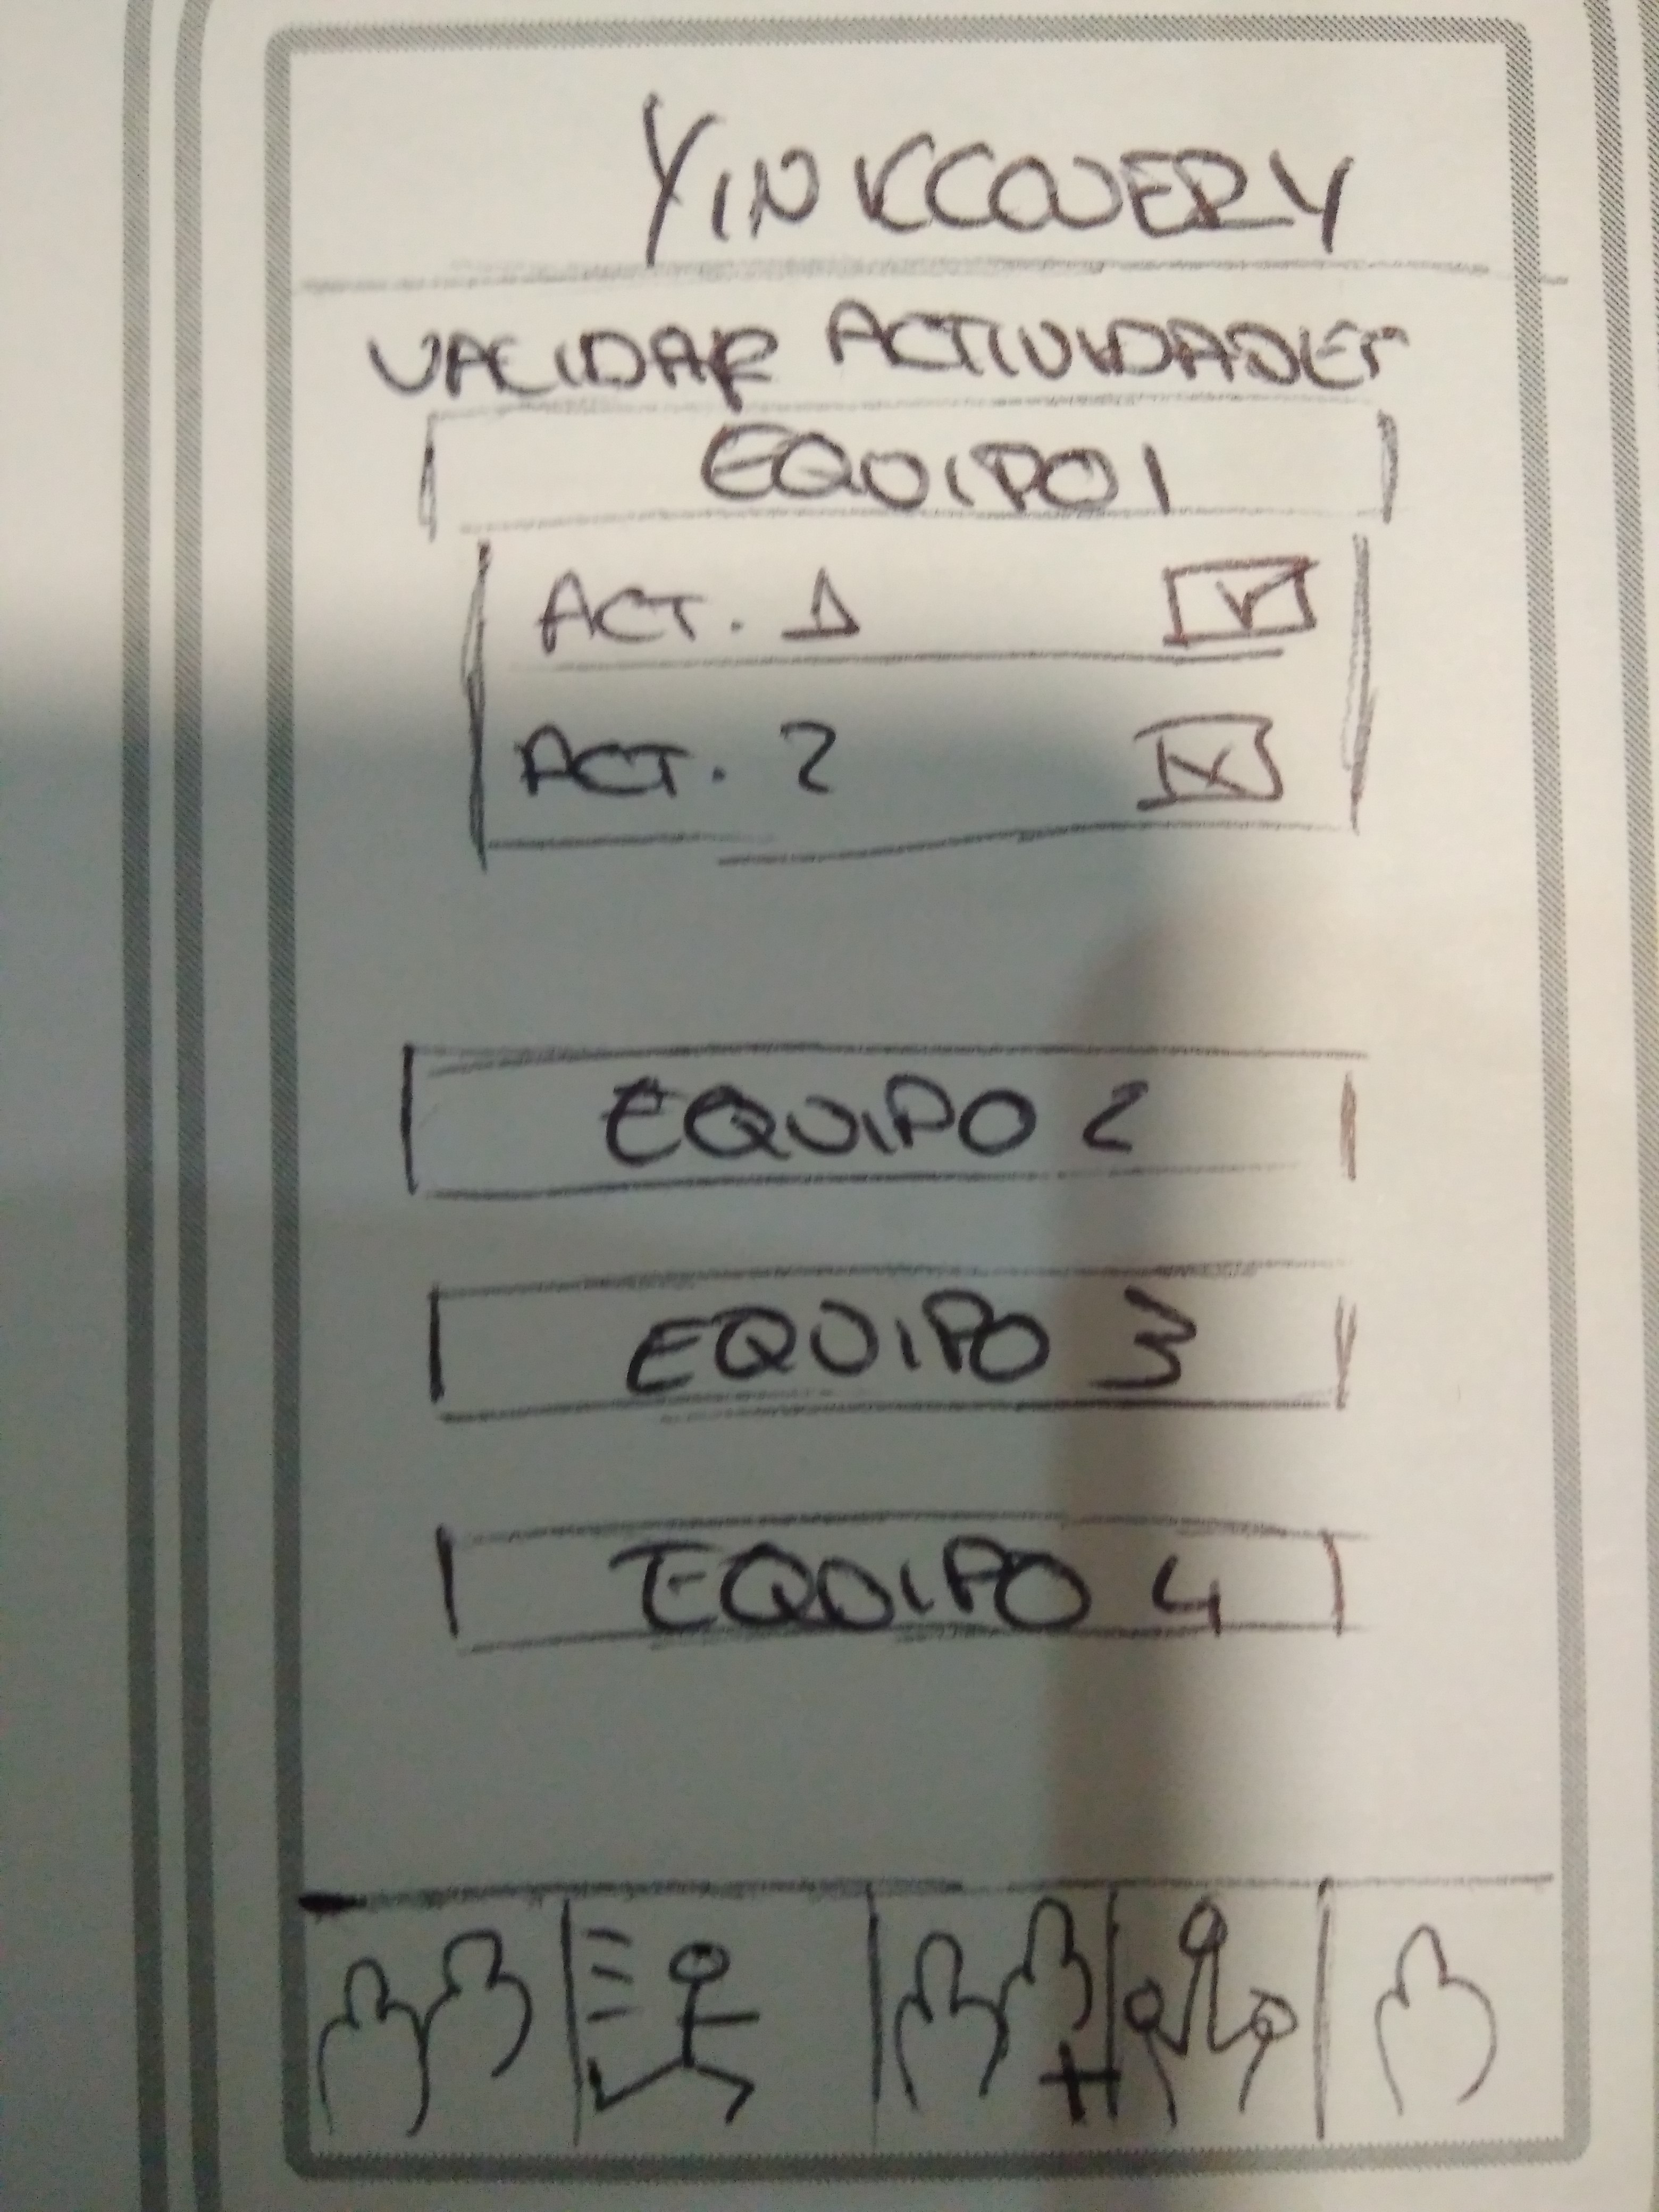 YINKCOVERY
VALIDAR ACTIVIDADES
EQUIPO 1
ACT. 1
ACT. 2
EQUIPO 2
EQUIPO 3
EQUIPO 4